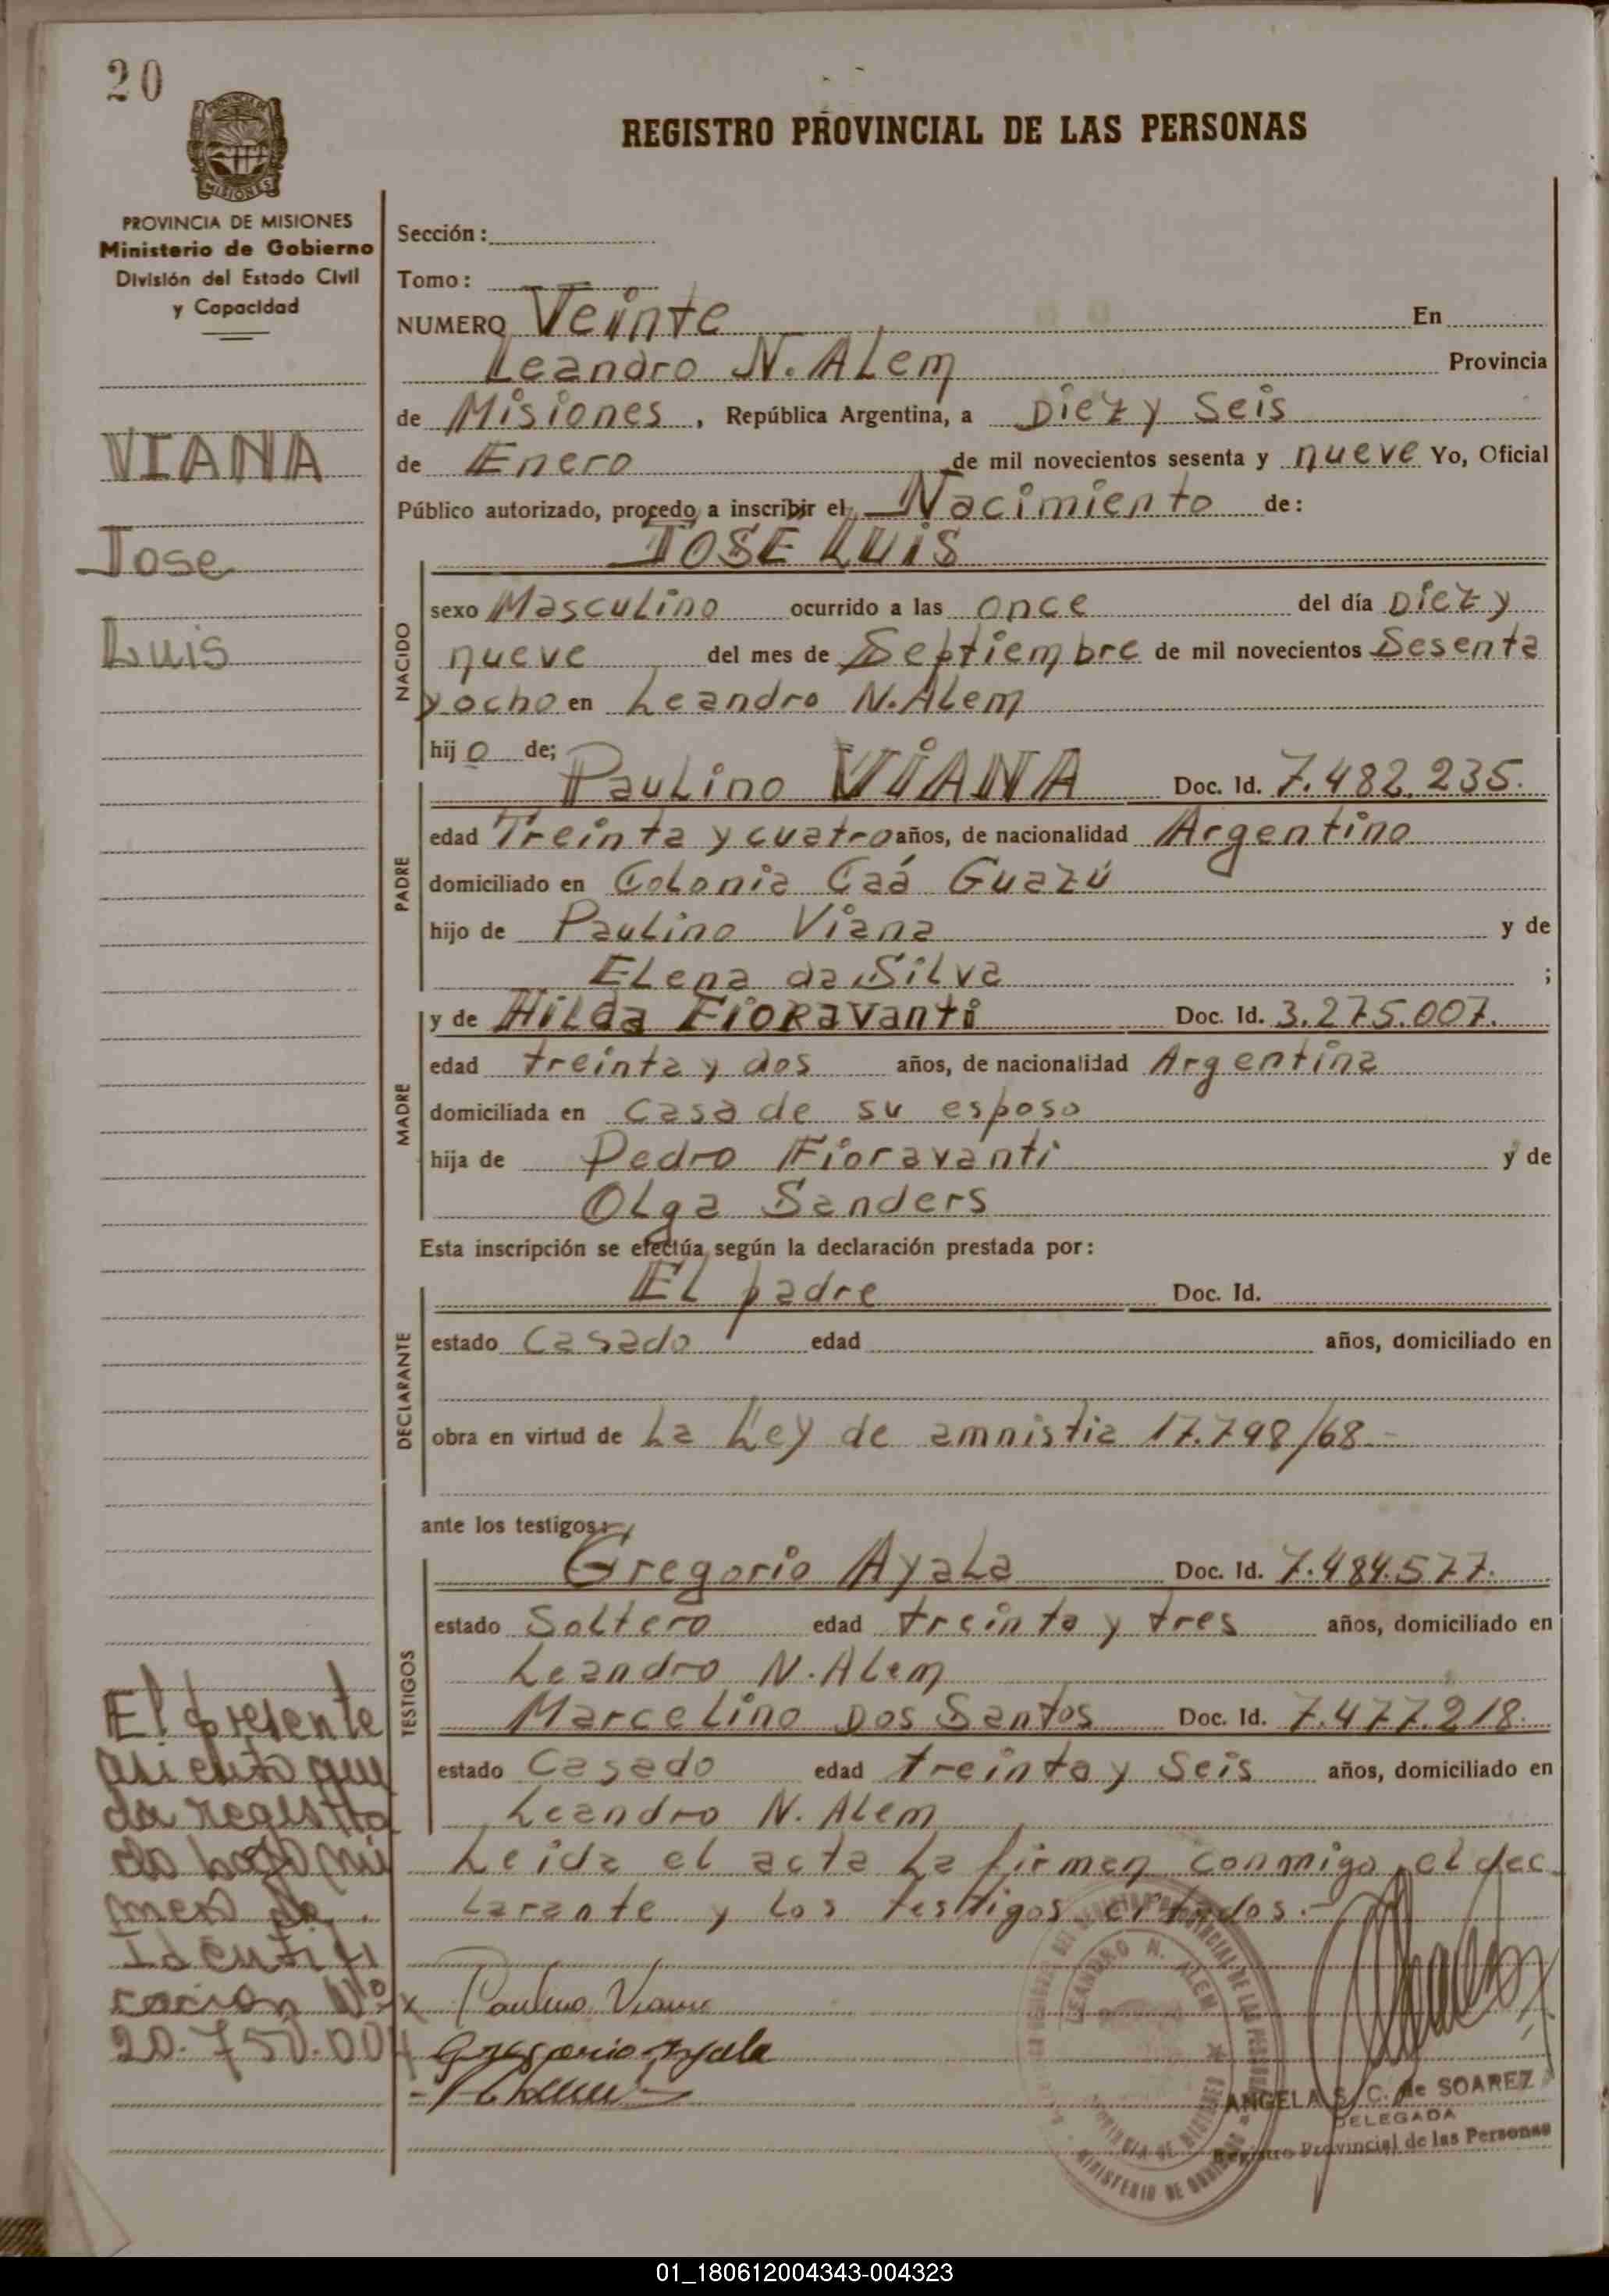 20
PROVINCIA DE MISIONES
Ministerio de Gobierno
División del Estado Civil
y Capacidad
VIANA
Jose
Luis
El presente
asiento que
da registra
do bajo nú
mero de
Identifi
cacion Nº
20.750.004
REGISTRO PROVINCIAL DE LAS PERSONAS
Sección:
Tomo:
NUMERO Veinte En
Leandro N. Alem Provincia
de Misiones, República Argentina, a Diez y Seis
de Enero de mil novecientos sesenta y nueve Yo, Oficial
Público autorizado, procedo a inscribir el Nacimiento de:
JOSE LUIS
NACIDO
sexo Masculino ocurrido a las once del día Diez y
nueve del mes de Septiembre de mil novecientos Sesenta
y ocho en Leandro N. Alem
hijo de;
PADRE
Paulino VIANA Doc. Id. 7.482.235.
edad Treinta y cuatro años, de nacionalidad Argentino
domiciliado en Colonia Caá Guazú
hijo de Paulino Viana y de
Elena da Silva ;
MADRE
y de Hilda Fioravanti Doc. Id. 3.275.007.
edad treinta y dos años, de nacionalidad Argentina
domiciliada en casa de su esposo
hija de Pedro Fioravanti y de
Olga Sanders
Esta inscripción se efectúa según la declaración prestada por:
DECLARANTE
El padre Doc. Id.
estado Casado edad años, domiciliado en
obra en virtud de La Ley de amnistia 17.798/68.-
ante los testigos:
TESTIGOS
Gregorio Ayala Doc. Id. 7.484.577.
estado Soltero edad treinta y tres años, domiciliado en
Leandro N. Alem
Marcelino Dos Santos Doc. Id. 7.477.218.
estado Casado edad treinta y Seis años, domiciliado en
Leandro N. Alem
Leida el acta la firman conmigo, el dec
larante y los testigos citados.-
x Paulino Viana
Gregorio Ayala
LEANDRO N. ALEM
PROVINCIA DE MISIONES
MINISTERIO DE GOBIERNO
ANGELA S. C. de SOAREZ
DELEGADA
Registro Provincial de las Personas
01_180612004343-004323